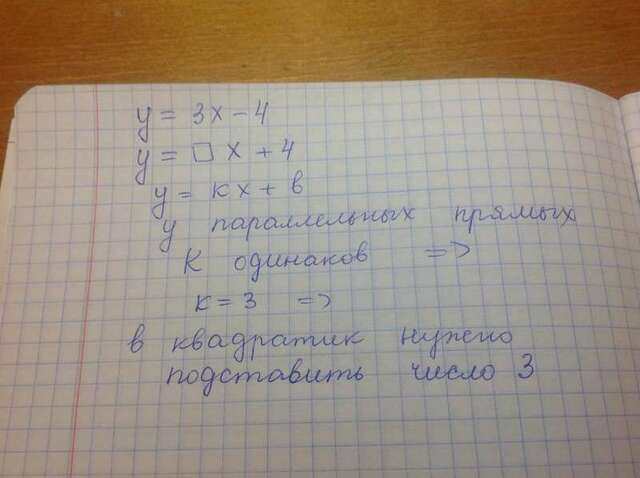 y = 3x - 4
y = □ x + 4
y = кx + в
у параллельных прямых
К одинаков =>
к = 3 =>
в квадратик нужно
подставить число 3